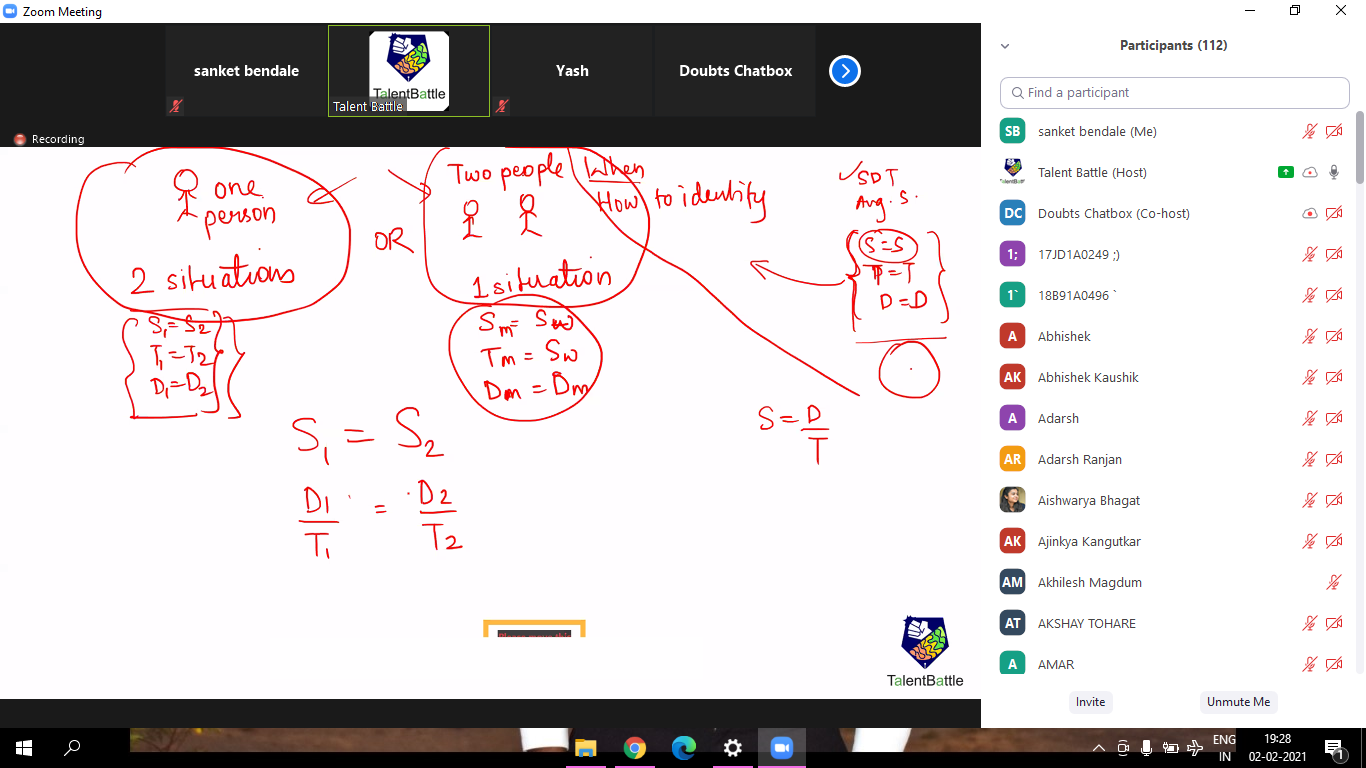 Zoom Meeting
sanket bendale
TalentBattle
Talent Battle
Yash
Doubts Chatbox
Recording
one
person
2 situations
S1 = S2
T1 = T2
D1 = D2
OR
Two people
1 situation
Sm = Sw
Tm = Sw
Dm = Dm
When
How to identify
✓SDT
Avg. S.
S = S
T = T
D = D
S1 = S2
D1/T1 = D2/T2
S = D/T
TalentBattle
Participants (112)
Find a participant
SB sanket bendale (Me)
Talent Battle (Host)
DC Doubts Chatbox (Co-host)
1; 17JD1A0249 ;)
1` 18B91A0496 `
A Abhishek
AK Abhishek Kaushik
A Adarsh
AR Adarsh Ranjan
Aishwarya Bhagat
AK Ajinkya Kangutkar
AM Akhilesh Magdum
AT AKSHAY TOHARE
A AMAR
Invite
Unmute Me
ENG
IN
19:28
02-02-2021
1